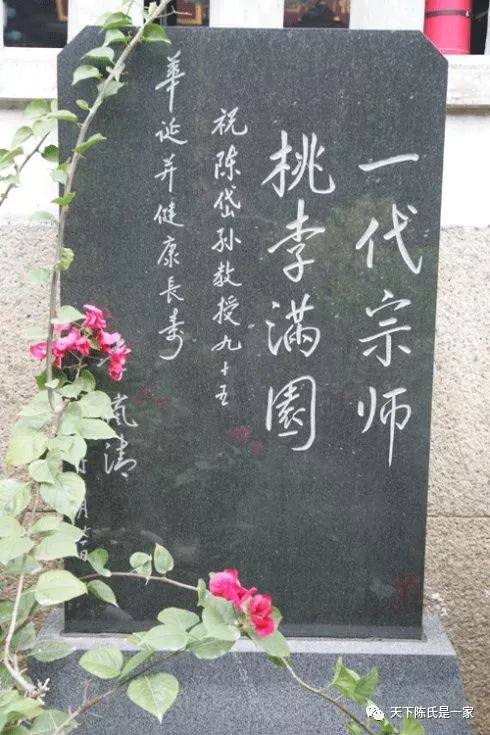 一代宗师
桃李滿園
祝陈岱孙教授九十五
華诞并健康長寿
岚清
天下陈氏是一家